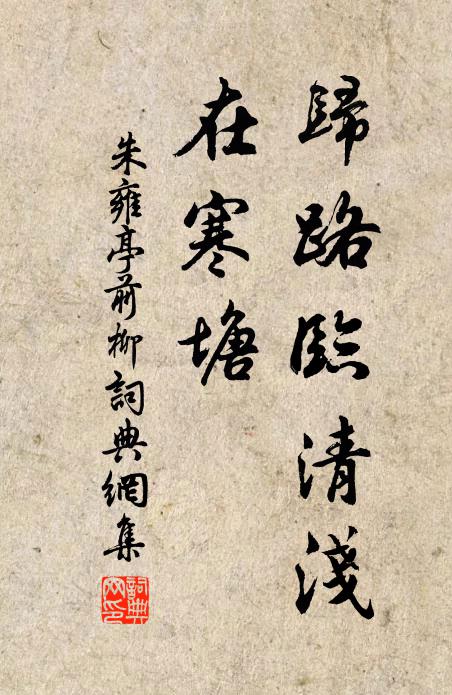 歸路臨清淺
在寒塘
朱雍亭前柳詞典網集
詞典網印